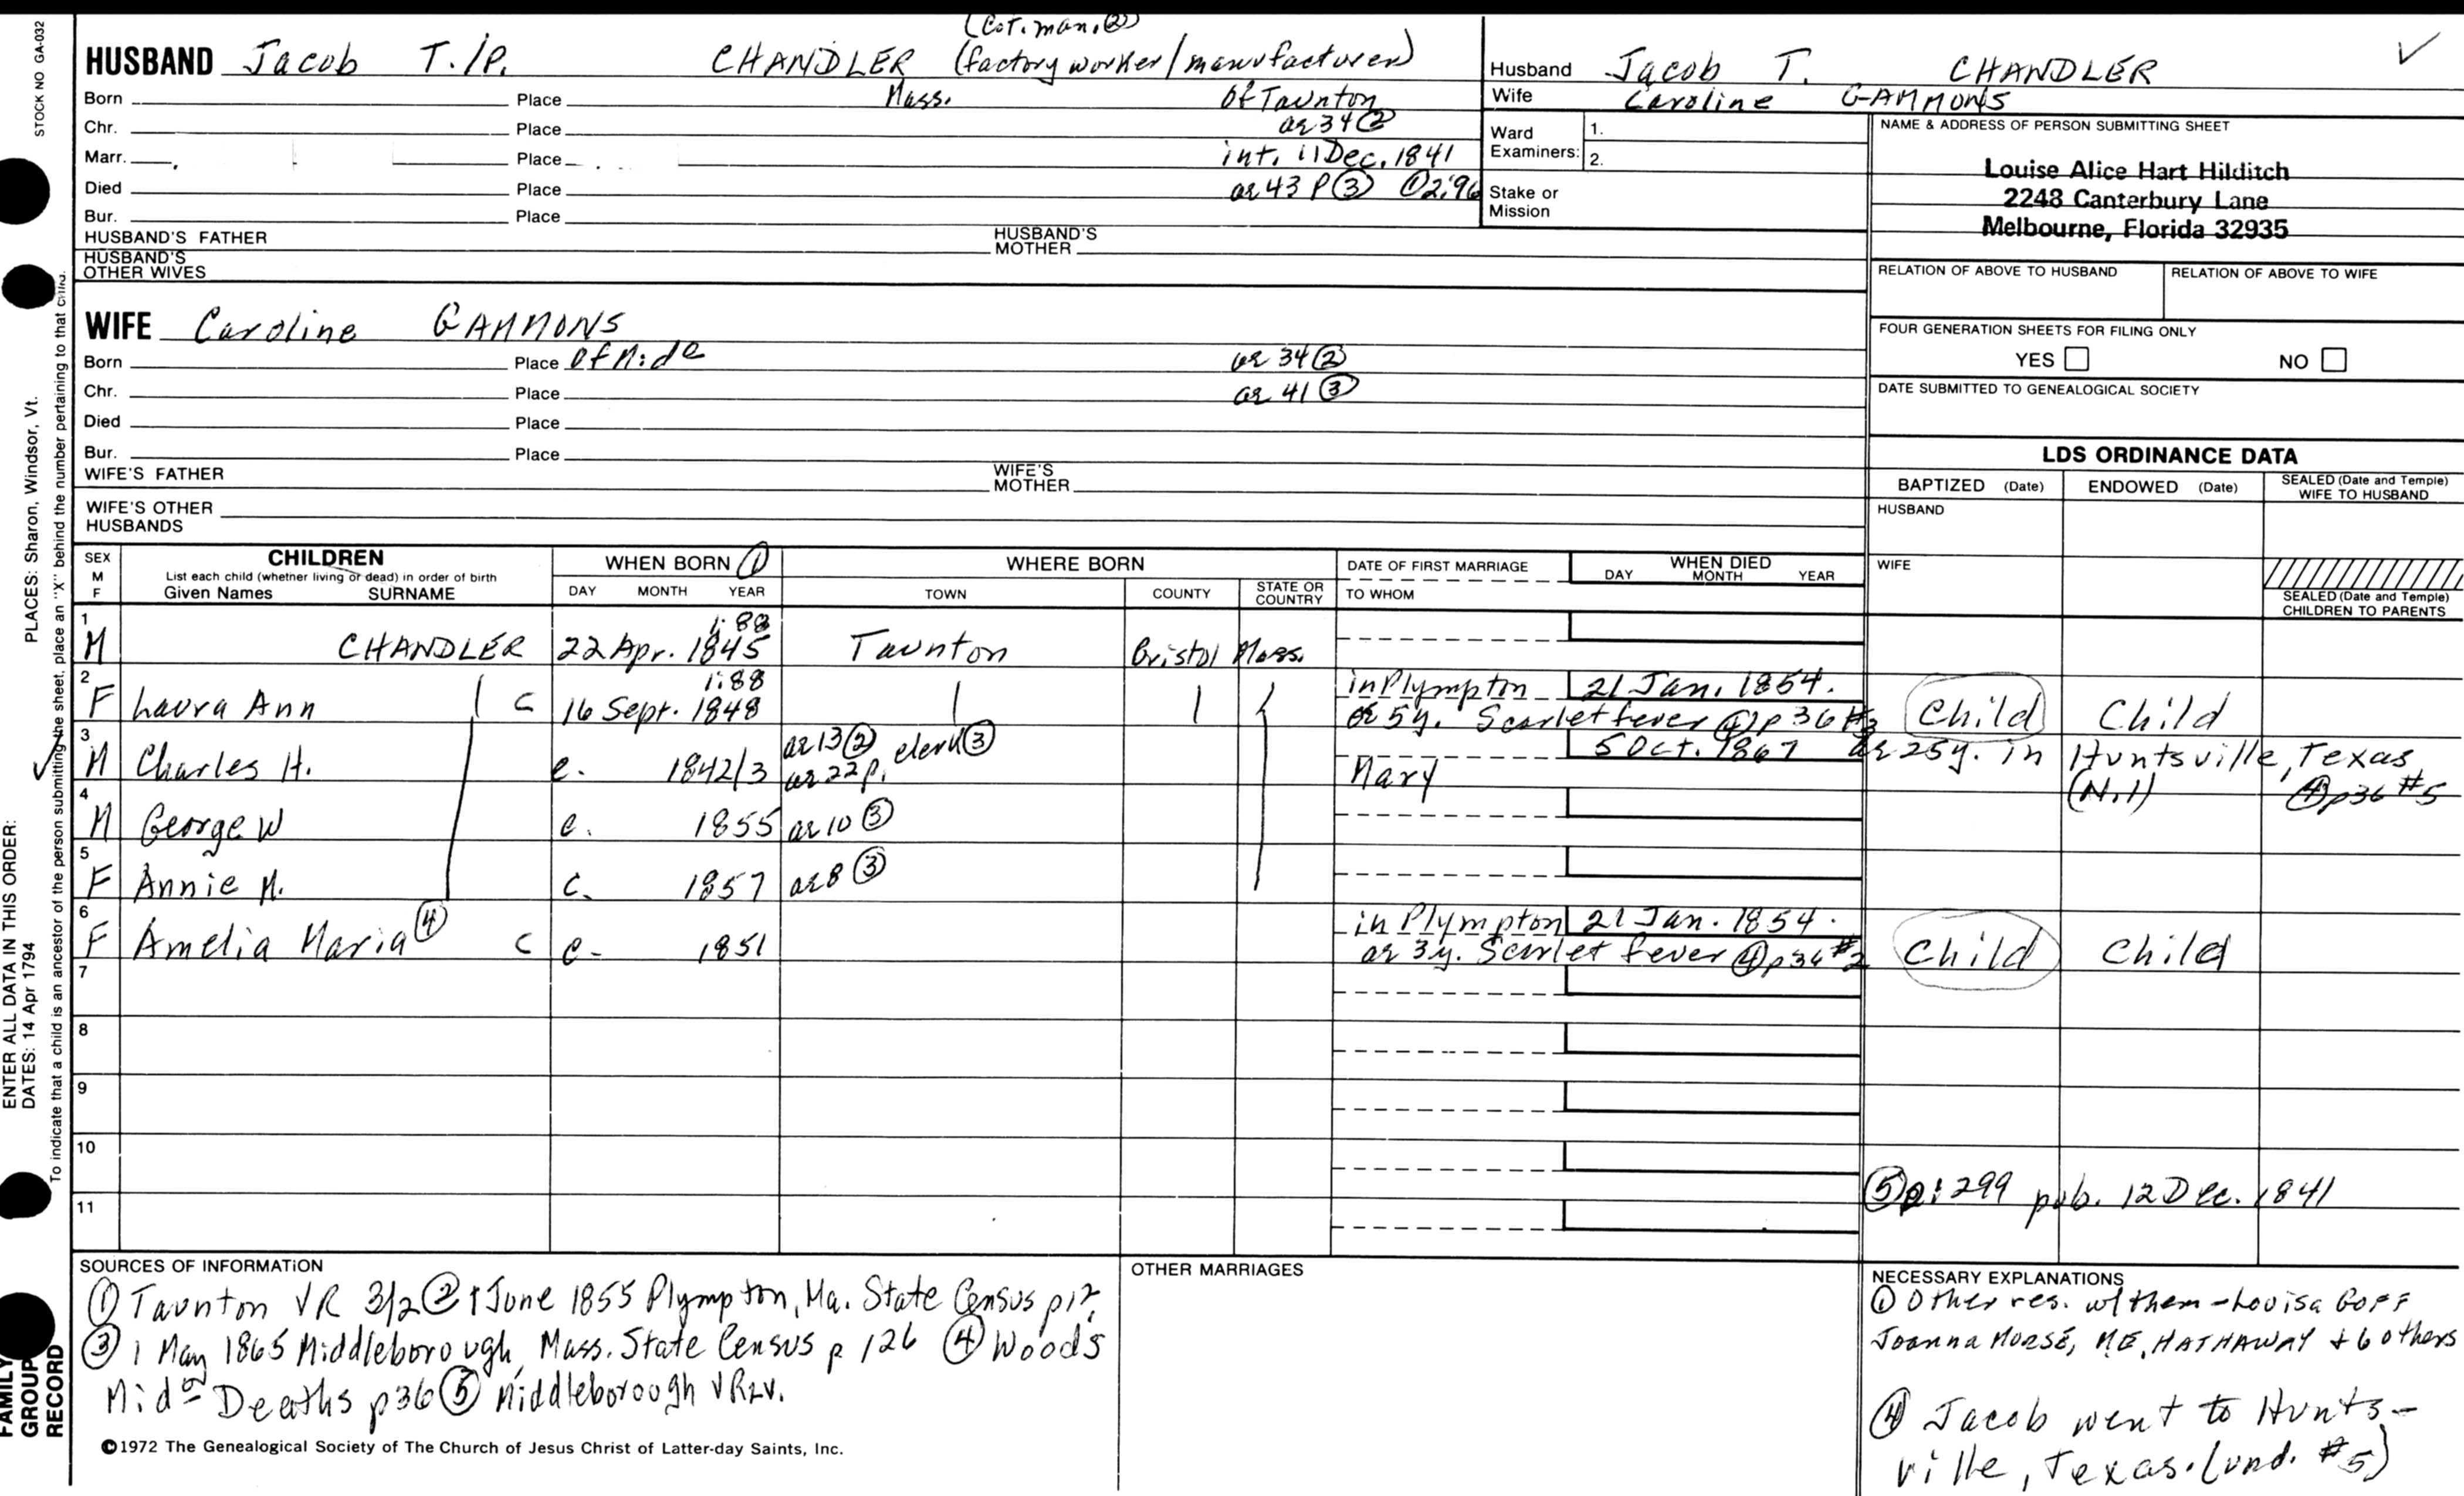 STOCK NO GA-032
(Cot. man. ②)
HUSBAND Jacob T./P. CHANDLER (factory worker/manufacturer)
Born Place Mass. of Taunton
Chr. Place ae 34 ②
Marr. Place int. 11 Dec. 1841
Died Place ae 43 P ③ ① 2:96
Bur. Place
HUSBAND'S FATHER HUSBAND'S MOTHER
HUSBAND'S OTHER WIVES
Husband Jacob T. CHANDLER ✓
Wife Caroline GAMMONS
Ward Examiners: 1.
2.
Stake or Mission
NAME & ADDRESS OF PERSON SUBMITTING SHEET
Louise Alice Hart Hilditch
2248 Canterbury Lane
Melbourne, Florida 32935
RELATION OF ABOVE TO HUSBAND RELATION OF ABOVE TO WIFE
FOUR GENERATION SHEETS FOR FILING ONLY
YES NO
DATE SUBMITTED TO GENEALOGICAL SOCIETY
WIFE Caroline GAMMONS
Born Place of Mid ae 34 ②
Chr. Place ae 41 ③
Died Place
Bur. Place
WIFE'S FATHER WIFE'S MOTHER
WIFE'S OTHER HUSBANDS
LDS ORDINANCE DATA
BAPTIZED (Date) ENDOWED (Date) SEALED (Date and Temple) WIFE TO HUSBAND
HUSBAND
WIFE
SEALED (Date and Temple) CHILDREN TO PARENTS
SEX M F CHILDREN WHEN BORN ① WHERE BORN DATE OF FIRST MARRIAGE WHEN DIED
List each child (whether living or dead) in order of birth
Given Names SURNAME DAY MONTH YEAR TOWN COUNTY STATE OR COUNTRY TO WHOM DAY MONTH YEAR
1 1:88
M CHANDLER 22 Apr. 1845 Taunton Bristol Mass.
2 1:88 in Plympton 21 Jan. 1854.
F Laura Ann c 16 Sept. 1848 ae 5y. Scarlet fever ④ p 36 #3 Child Child
3 ae 13 ② clerk ③ 5 Oct. 1867 ae 25y. in Huntsville, Texas
✓ M Charles H. c. 1842/3 ae 22 p. Mary (N.1) ④ p36 #5
4
M George W c. 1855 ae 10 ③
5
F Annie M. c. 1857 ae 8 ③
6 in Plympton 21 Jan. 1854.
F Amelia Maria ④ c c. 1851 ae 3y. Scarlet fever ④ p36 #2 Child Child
7
8
9
10
⑤ p: 299 pub. 12 Dec. 1841
11
SOURCES OF INFORMATION
① Taunton VR 3/2 ② 1 June 1855 Plympton, Ma. State Census p12,
③ 1 May 1865 Middleborough, Mass. State Census p 126 ④ Wood's
Mid Deaths p36 ⑤ Middleborough VR
OTHER MARRIAGES
NECESSARY EXPLANATIONS
① Other res. w/ them - Louisa GOFF
Joanna MORSE, M.E. HATHAWAY + 6 others
④ Jacob went to Hunts-
ville, Texas. (und. #5)
©1972 The Genealogical Society of The Church of Jesus Christ of Latter-day Saints, Inc.
ENTER ALL DATA IN THIS ORDER:
DATES: 14 Apr 1794 PLACES: Sharon, Windsor, Vt.
To indicate that a child is an ancestor of the person submitting the sheet, place an "X" behind the number pertaining to that child.
FAMILY
GROUP
RECORD